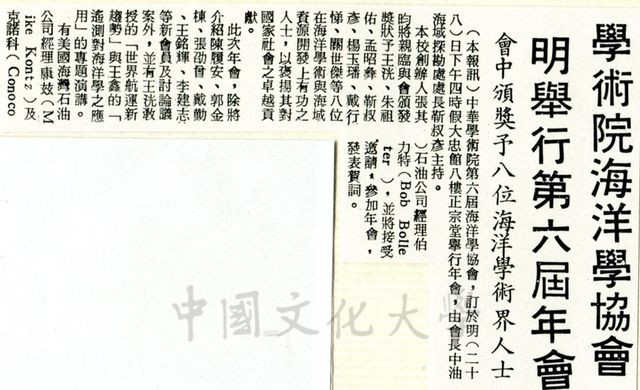 學術院海洋學協會
明舉行第六屆年會
會中頒獎予八位海洋學術界人士
（本報訊）中華學術院第六屆海洋學協會，訂於明（二十
八）日下午四時假大忠館八樓正宗堂舉行年會，由會長中油
海域探勘處處長靳叔彥主持。
本校創辦人張其
昀將親臨與會頒發
獎狀予王洸、朱祖
佑、孟昭彝、靳叔
彥、楊玉璠、戴行
悌、關世傑等八位
在海洋學術與海域
資源開發上有功之
人士，以褒揚其對
國家社會之卓越貢
獻。
此次年會，除將
介紹陳履安、郭金
棟、張劭曾、戴勳
、王銘輝、李建志
等新會員及討論議
案外，並有王洸教
授的「世界航運新
趨勢」與王鑫的「
遙測對海洋學之應
用」的專題演講。
有美國海灣石油
公司經理康玆（M
ike Kontz）及
克諾科（Conoco
）石油公司經理伯
力特（Bob Bolle
ter），並將接受
邀請，參加年會，
發表賀詞。
中國文化大學